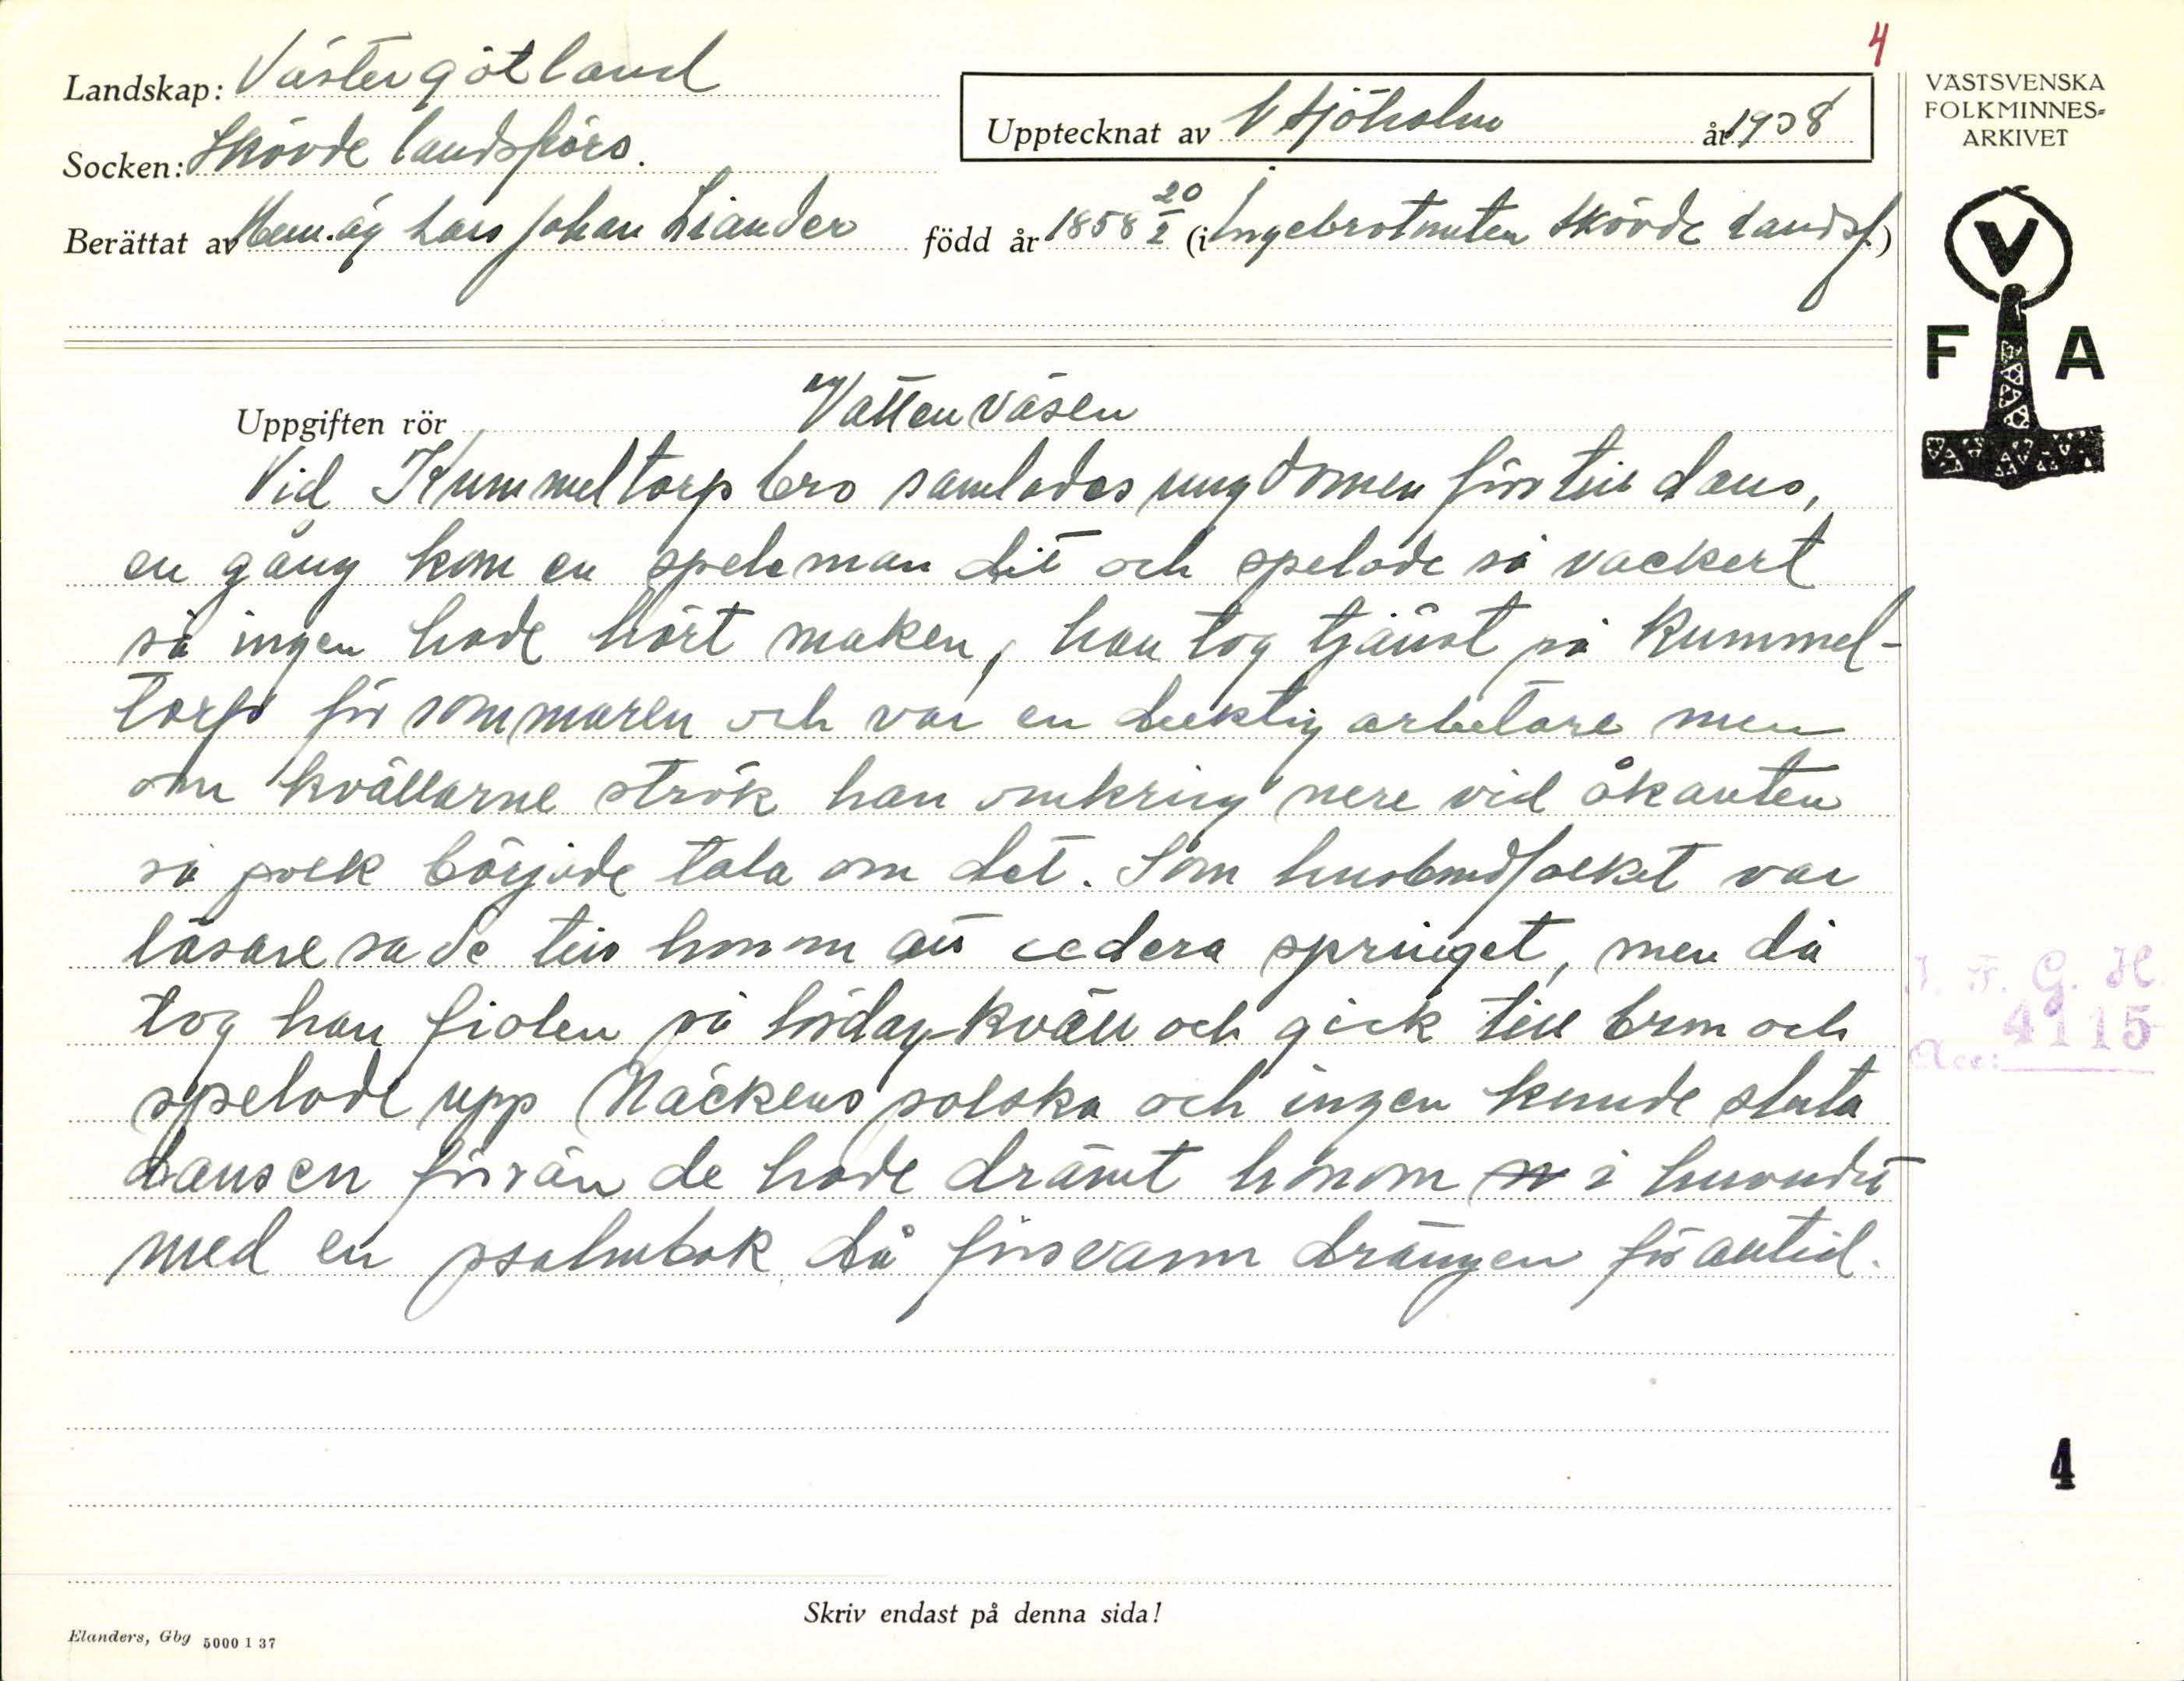 4
Landskap: Västergötland
Socken: Skövde landsförs.
Upptecknat av V Sjöholm år 1938
Berättat av Hem.äg Lars Johan Liander född år 1858 20/2 (i Ingebrotmuten Skövde landsf.)
VÄSTSVENSKA
FOLKMINNES-
ARKIVET
V
F A
Uppgiften rör Vattenväsen
Vid Kummeltorp bro samlades ungdomen förr till dans,
en gång kom en speleman dit och spelade så vackert
så ingen hade hört maken, han tog tjänst på Kummel-
torp för sommaren och var en duktig arbetare men
om kvällarne strök han omkring nere vid åkanten
så folk började tala om det. Som husbondfolket var
läsare sade till honom att cedera springet, men då
tog han fiolen på lördagkväll och gick till bron och
spelade upp Näckens polska och ingen kunde sluta
dansen förrän de hade drämt honom i huvudet
med en psalmbok då försvann drängen för alltid.
I. F. G. H.
Acc: 4115
4
Skriv endast på denna sida!
Elanders, Gbg 5000 1 37